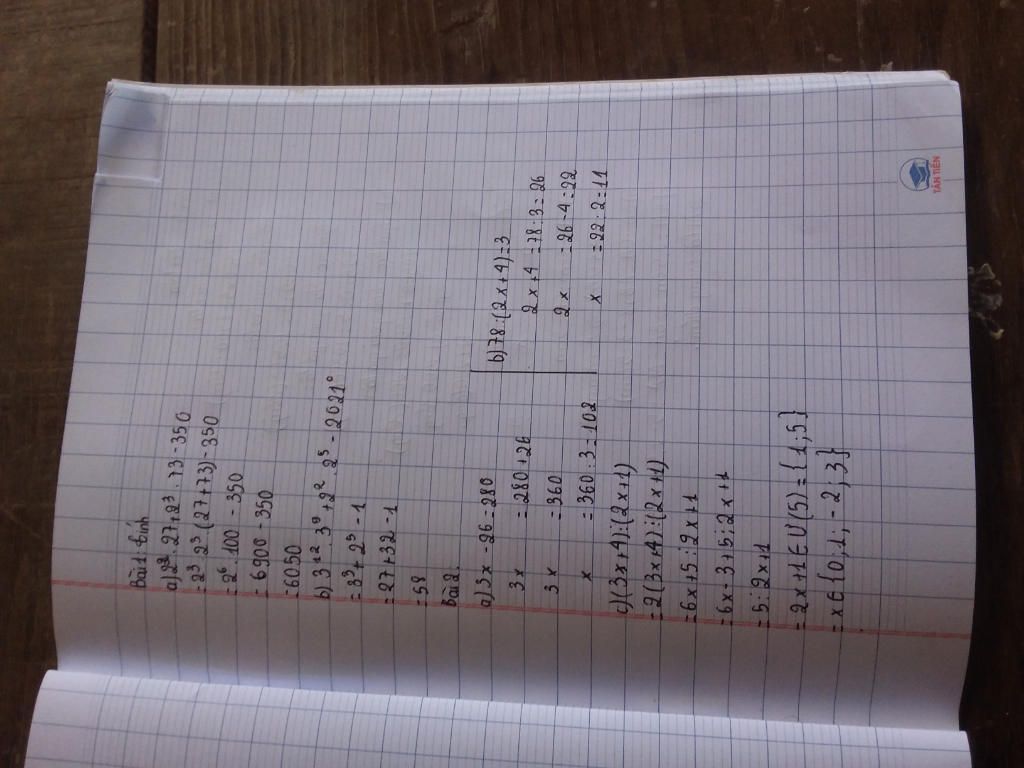 Bài 1: tính
a) 2³ . 27 + 2³ . 73 - 350
= 2³ 2³ (27 + 73) - 350
= 2⁶ . 100 - 350
= 6900 - 350
= 6050
b) 3¹² : 3⁹ + 2² . 2⁵ - 2021⁰
= 3³ + 2⁵ - 1
= 27 + 32 - 1
= 58
Bài 2.
a) 3x - 26 = 280
3x = 280 + 26
3x = 360
x = 360 : 3 = 102
b) 78 : (2x + 4) = 3
2x + 4 = 78 : 3 = 26
2x = 26 - 4 = 22
x = 22 : 2 = 11
c) (3x + 4) ⋮ (2x + 1)
= 2 (3x + 4) ⋮ (2x + 1)
= 6x + 5 ⋮ 2x + 1
= 6x - 3 + 5 ⋮ 2x + 1
= 5 ⋮ 2x + 1
= 2x + 1 ∈ U (5) = {1; 5}
= x ∈ {0; 1; -2; 3}
TÂN TIẾN